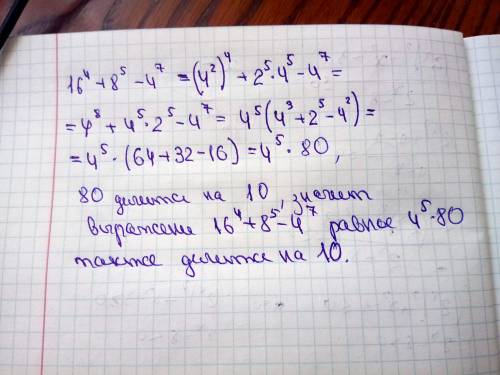 16⁴+8⁵-4⁷ =(4²)⁴ + 2⁵·4⁵-4⁷ =
=4⁸+4⁵·2⁵-4⁷= 4⁵(4³+2⁵-4²)=
=4⁵·(64+32-16)=4⁵·80,
80 делится на 10, значит
выражение 16⁴+8⁵-4⁷ равное 4⁵·80
также делится на 10.